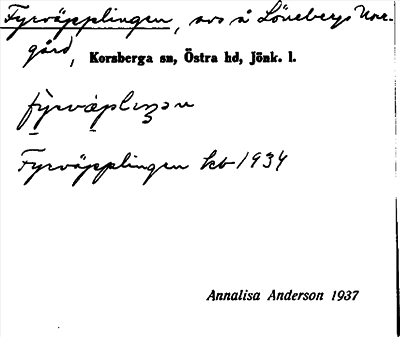 Fyrväpplingen, avs å Löneberg Norr-
gård, Korsberga sn, Östra hd, Jönk. l.
fy̱rvæ̱pliŋən
Fyrväpplingen kb 1934
Annalisa Anderson 1937